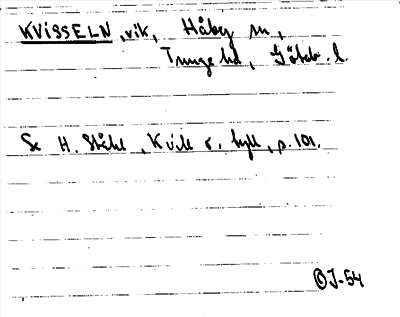 KVISSELN, vik, Håby sn,
Tunge hd, Göteb. l.
Se H. Ståhl, Kvill o. hyll, p. 101.
OJ-54